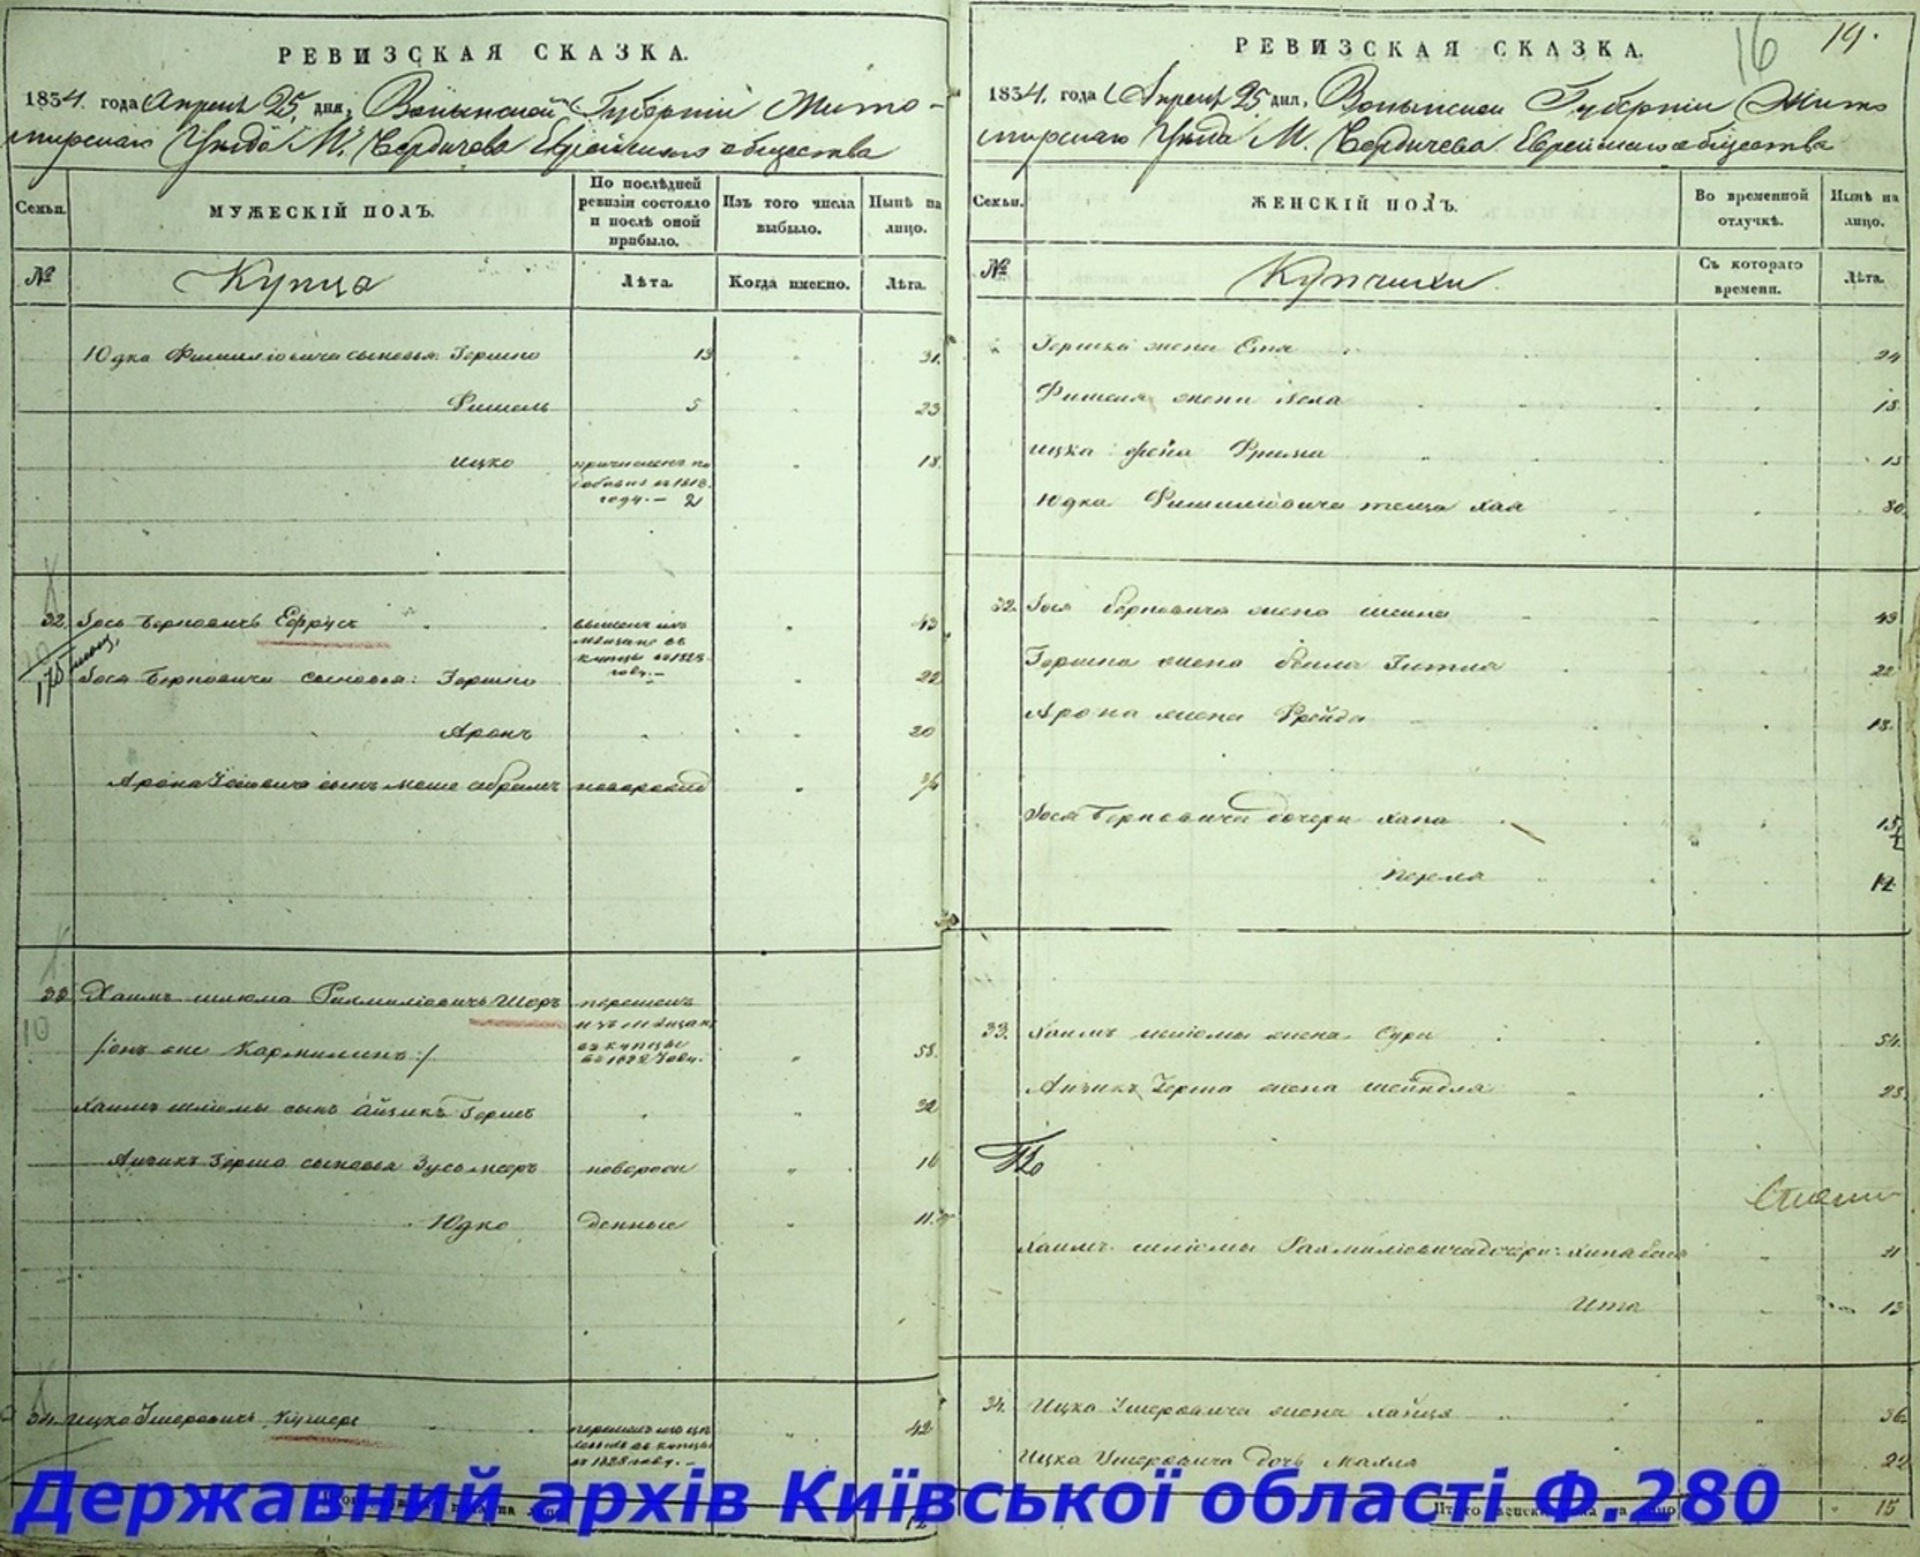 РЕВИЗСКАЯ СКАЗКА.
1834. года Апреля 25, дня, Волынской Губернии Жито-
мирскаго Уезда М. Бердичева Еврейскаго общества
Семьи.
МУЖЕСКІЙ ПОЛЪ.
По послѣдней ревизіи состояло и послѣ оной прибыло.
Изъ того числа выбыло.
Нынѣ на лицо.
№
Купцы
Лѣта.
Когда именно.
Лѣта.
Юдка Фишилiовича сыновья: Гершко 13 31.
Фишель 5 23
Ицко 18.
причисленъ по
въ 1818.
году. — 2
32. Іось Берковичъ Ефрусъ 43
вышелъ изъ
мещанъ въ
купцы въ 1828
году.—
175
Іося Берковича сыновья: Гершко 22
Аронъ 20
Арона Іосіовича сынъ Моше Абрамъ новорожд
33 Хаимъ Шлюма Рахмиліовичъ Шоръ перешелъ
изъ мѣщан
въ купцы
въ 1828 году.
/:онъ же Кармилинъ:/ 58.
Хаимъ Шлiомы сынъ Айзикъ Гершъ 32
Айзикъ Герша сыновья Зусьмееръ новорож 16
Юдко денные 11.
34. Ицко Ушеровичъ Кушеръ 42
въ купцы
въ 1828 году.—
12
РЕВИЗСКАЯ СКАЗКА.
16
19.
1834. года Апреля 25 дня, Волынской Губернии Жито
мирскаго Уезда М. Бердичева Еврейскаго общества
Семьи.
ЖЕНСКІЙ ПОЛЪ.
Во временной отлучкѣ.
Нынѣ на лицо.
№
Купчихи
Съ котораго времени.
Лѣта.
Гершка жена Етя 24
Фишеля жена 18
Ицка жена Фрима 15
Юдка Фишилiовича теща Хая 80.
32. Іося Берковича жена Шейна 43
Гершка жена Бейла Гитла 22
Арона жена Фрейда 18.
Іося Берковича дочери Хана 15
Перла 12
33. Хаимъ Шлiомы жена Сура 54.
Айзикъ Герша жена Шейндля 23.
Хаимъ Шлiомы Рахмилiовича дочери: Хина 21
Ита 13
34. Ицка Ушеровича жена Хайця 36.
Ицка Ушеровича дочь Махля 22
15
Державний архів Київської області Ф.280